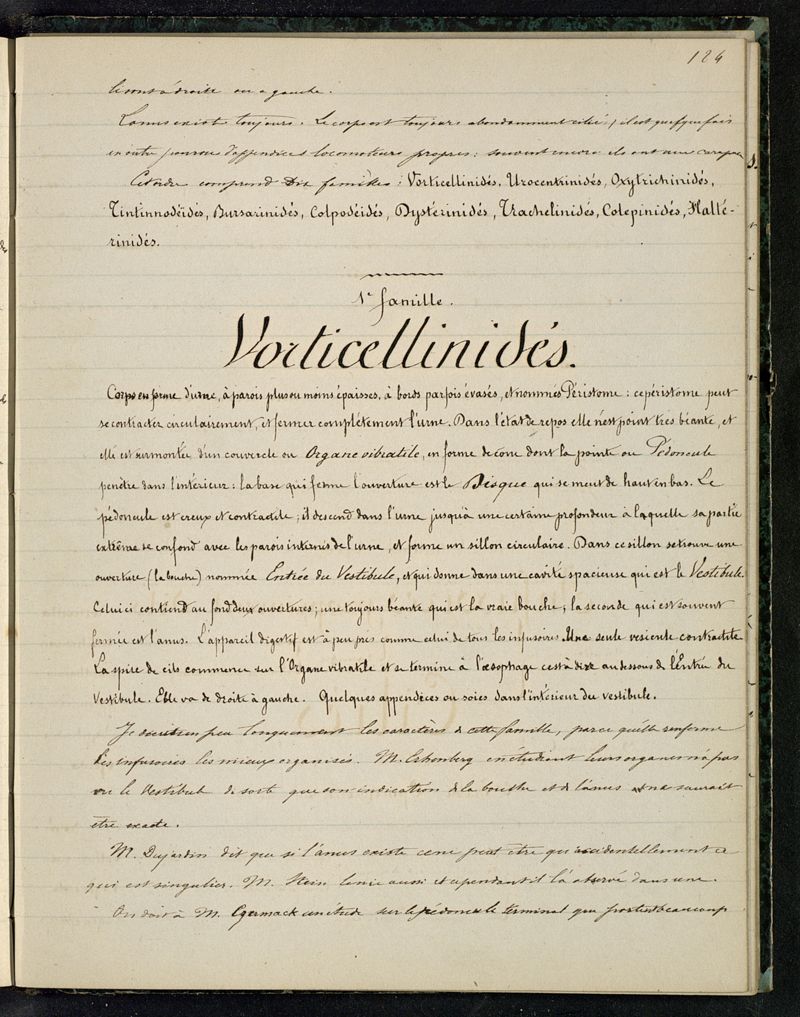 124
à droite ou a gauche.
L'anus existe toujours. Le corps est toujours abondamment cilié, il est quelquefois
en outre pourvu d'appendices locomoteurs propres; souvent encore ils ont une carapace
Cet ordre comprend dix familles: Vorticellinidés, Urocentrinidés, Oxytrichinidés,
Tintinnodéidés, Bursarinidés, Colpodéidés, Dystérinidés, Trachelinidés, Colepinidés, Halté-
rinidés.
1e famille.
Vorticellinidés.
Corps en forme d'urne, à parois plus ou moins épaisses, à bords parfois évasés, et nommés Péristome: ce péristome peut
se contracter circulairement, et fermer complétement l'urne. Dans l'état de repos elle n'est point très béante, et
elle est surmontée d'un couvercle ou Organe vibratile, en forme de cone dont la pointe ou Pédoncule
penètre dans l'intérieur: la base qui ferme l'ouverture est le Disque qui se meut de haut en bas. Le
pédoncule est creux et contractile; il descend dans l'urne jusqu'à une certaine profondeur à laquelle sa partie
extrême se confond avec les parois internes de l'urne, et forme un sillon circulaire. Dans ce sillon se trouve une
ouverture (la bouche) nommée Entrée du Vestibule, et qui donne dans une cavité spacieuse qui est le Vestibule.
Celui ci contient au fond deux ouvertures; une toujours béante qui est la vraie bouche; la seconde qui est souvent
fermée est l'anus. L'appareil digestif est à peu près comme celui de tous les infusoires. Une seule vesicule contractile
La spire de cils commence sur l'Organe vibratile et se termine à l'œsophage c'est à dire au dessous de l'Entrée du
Vestibule. Elle va de droite à gauche. Quelques appendices ou soies dans l'intérieur du vestibule.
Je décris un peu longuement les caractères de cette famille, parce qu'elle renferme
les infusoires les mieux organisés. M. Erhenberg en étudiant leurs organes n'a pas
vu le Vestibule de sorte que son indication de la bouche et de l'anus ne saurait
etre exacte.
M. Dujardin dit que si l'anus existe ce ne peut etre qu'accidentellement ce
qui est singulier. M. Stein le nie aussi et cependant il l'a observé dans une.
On doit à M. Czermack une étude sur le pédoncule terminal que portent beaucoup